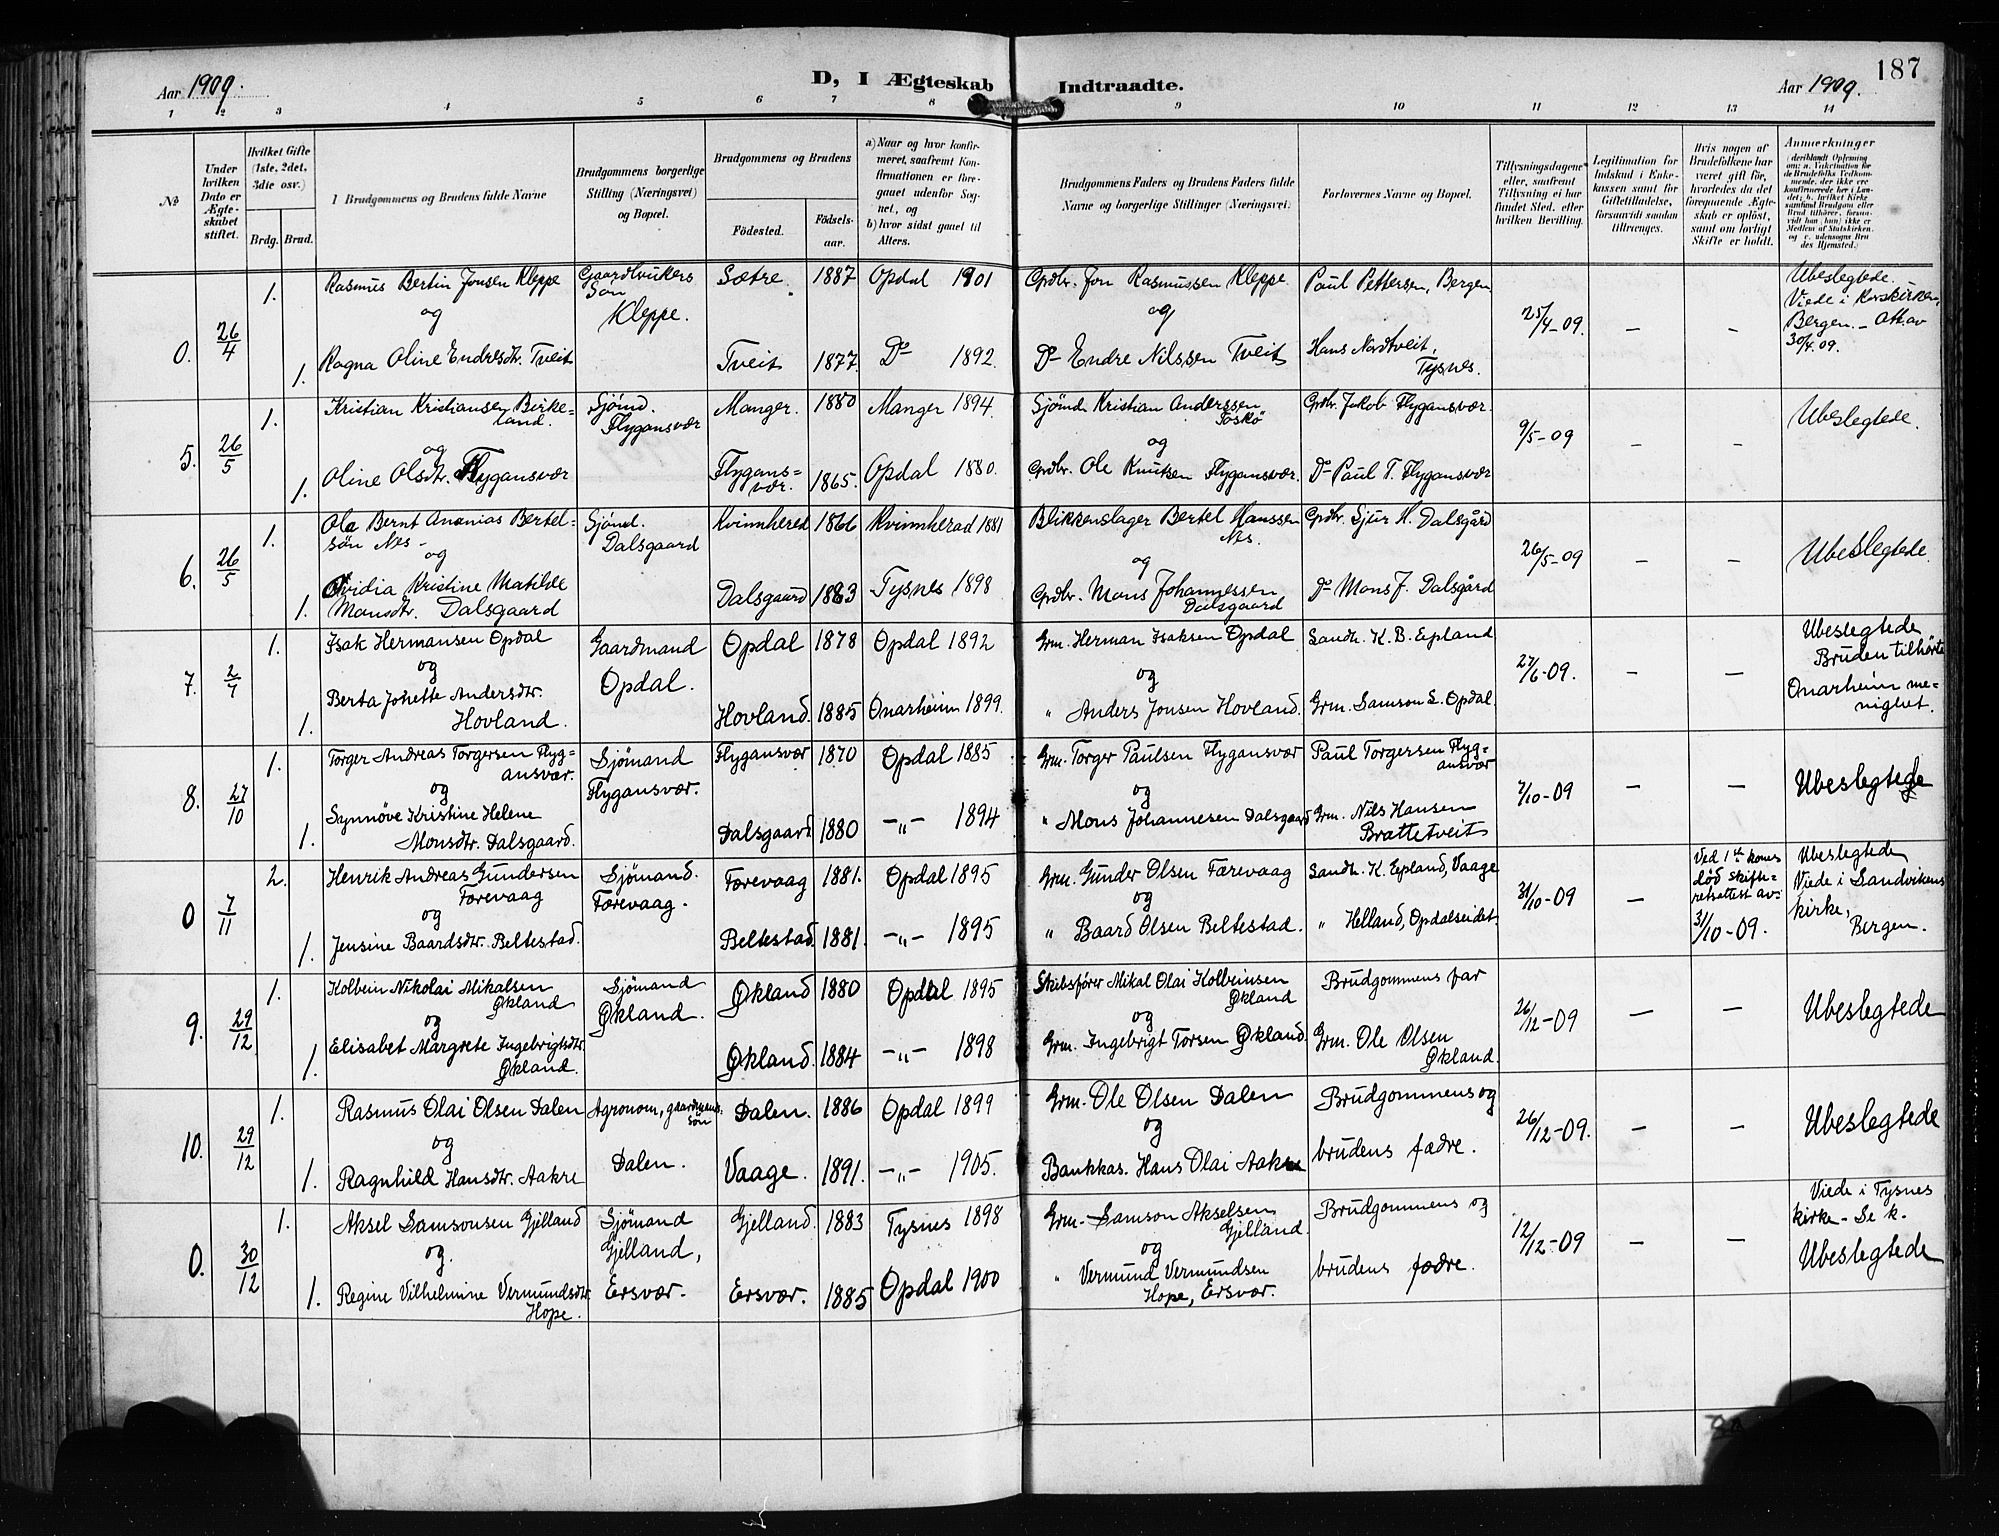 Aar 1909.
D, I Ægteskab Indtraadte.
Aar 1909.
187
1 2 3 4 5 6 7 8 9 10 11 12 13 14
No
Under hvilken Dato er Ægteskabet stiftet.
Hvilket Gifte (1ste, 2det, 3die osv.)
Brdg. Brud.
1 Brudgommens og Brudens fulde Navne
Brudgommens borgerlige Stilling (Næringsvei) og Bopæl.
Brudgommens og Brudens
Födested.
Födselsaar.
a) Naar og hvor konfirmeret, saafremt Konfirmationen er foregaaet udenfor Sognet, og
b) hvor sidst gaaet til Alters.
Brudgommens Faders og Brudens Faders fulde Navne og borgerlige Stillinger (Næringsvei)
Forlovernes Navne og Bopæl.
Tillysningsdagene eller, saafremt Tillysning ei har fundet Sted, efter hvilken Bevilling.
Legitimation for Indskud i Enkekassen samt for Giftetilladelse, forsaavidt saadan tiltrænges.
Hvis nogen af Brudefolkene har været gift før, hvorledes da det foregaaende Ægteskab er opløst, samt om lovligt Skifte er holdt.
Anmærkninger
0. 26/4 1. Rasmus Bertin Jonsen Kleppe Gaardbrukers Søn Kleppe. Sætre. 1887 Opdal 1901 Grdbr. Jon Rasmussen Kleppe Paul Pettersen, Bergen 25/4-09. — — Ubeslegtede. Viede i Korskirken, Bergen. – Att. av 30/4.09.
og
1. Ragna Oline Endresdtr. Tveit Tveit 1877. Do 1892. Do Endre Nilssen Tveit Hans Nordtveit, Tysnes.
5. 26/5 1. Kristian Kristiansen Birkeland. Sjömd. Flygansvær Manger. 1880 Manger 1894. Sjömd. Kristian Anderssen Toskö Grdbr. Jakob Flygansvær. 9/5-09 — — Ubeslegtede.
og
1. Oline Olsdtr. Flygansvær Flygansvær. 1865. Opdal 1880. Grdbr. Ole Knutsen Flygansvær. Do Paul T. Flygansvær
6. 26/5 1. Ole Bernt Ananias Bertelsön Nes - Sjömd. Dalsgaard Kvinnherred 1866 Kvinnherad 1881 Blikkenslager Bertel Hanssen Nes. Grdbr. Sjur H. Dalsgård 26/5-09 — — Ubeslegtede.
og
1. Kristine Matilde Monsdtr. Dalsgaard Dalsgaard 1883 Tysnes 1898 Grdbr. Mons Johannessen Dalsgaard Do Mons J. Dalsgård
7. 1. Isak Hermansen Opdal Gaardmand Opdal. Opdal 1878 Opdal 1892 Grm. Herman Isaksen Opdal Sandh. K. B. Epland 27/6-09. — — Ubeslegtede Bruden tilhörte Onarheim menighet.
og
1. Berta Johette Andersdtr. Hovland. Hovland. 1885 Onarheim 1899. " Anders Jonsen Hovland. Grm. Samson S. Opdal.
8. 27/10 1. Torger Andreas Torgersen Flygansvær. Sjömand Flygansvær. Flygansvær 1870 Opdal 1885 Grm. Torger Paulsen Flygansvær Paul Torgersen Flygansvær 7/10-09 — — Ubeslegtede
og
1. Synnöve Kristine Helene Monsdtr. Dalsgaard. Dalsgaard 1880 -„- 1894 " Mons Johannesen Dalsgaard Grm. Nils Hansen Brattetveit
0 7/11 2. Henrik Andreas Gundersen Færevaag Sjömand. Færevaag. Færevaag 1881. Opdal 1895 Grm. Gunder Olsen Færevaag Sandh. K. Epland, Vaage 31/10-09 — Ved 1ste kones död skifteretsattest av 31/10-09. Ubeslegtede Viede i Sandvikens kirke, Bergen.
og
1. Jensine Baardsdtr. Beltestad. Beltestad. 1881. -„- 1895 " Baard Olsen Beltestad. " Helland, Opdalseidet
9. 29/12 1. Kolbein Nikolai Mikalsen Økland Sjömand Økland. Økland 1880 Opdal 1895 Skibsfører Mikal Olai Kolbeinsen Økland Brudgommens far 26/12-09 — — Ubeslegtede
og
1. Elisabet Margrete Ingebrigtsdtr. Økland. Økland. 1884 -„- 1898 Grm. Ingebrigt Torsen Økland. Grm. Ole Olsen Økland.
10. 29/12 1. Rasmus Olai Olsen Dalen Agronom, gaardmanssön Dalen. Dalen. 1886 Opdal 1899 Grm. Ole Olsen Dalen Brudgommens og 26/12-09. — — Ubeslegtede
og
1. Ragnhild Hansdtr. Aakre Vaage. 1891. -„- 1905. Bankkas. Hans Olai Aakre brudens fædre.
0. 30/12 1. Aksel Samsonsen Gjelland Sjömand Gjelland, Ersvær. Gjelland. 1883 Tysnes 1898 Grm. Samson Akselsen Gjelland. Brudgommens og 12/12-09 — — Viede i Tysnes kirke – Se k. Ubeslegtede
og.
1. Regine Vilhelmine Vermundsdtr. Hope. Ersvær. 1885 Opdal 1900 " Vermund Vermundsen Hope, Ersvær. brudens fædre.